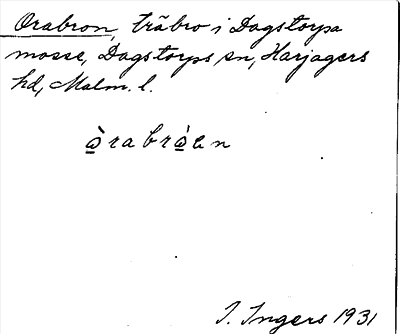 Orabron, träbro i Dagstorps
mosse, Dagstorps sn, Harjagers
hd, Malm. l.
ȯ̱rabrò̱en
I. Ingers 1931